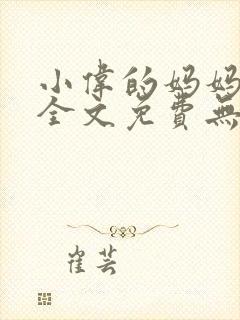 小偉的妈妈
全文免費無
崔芸